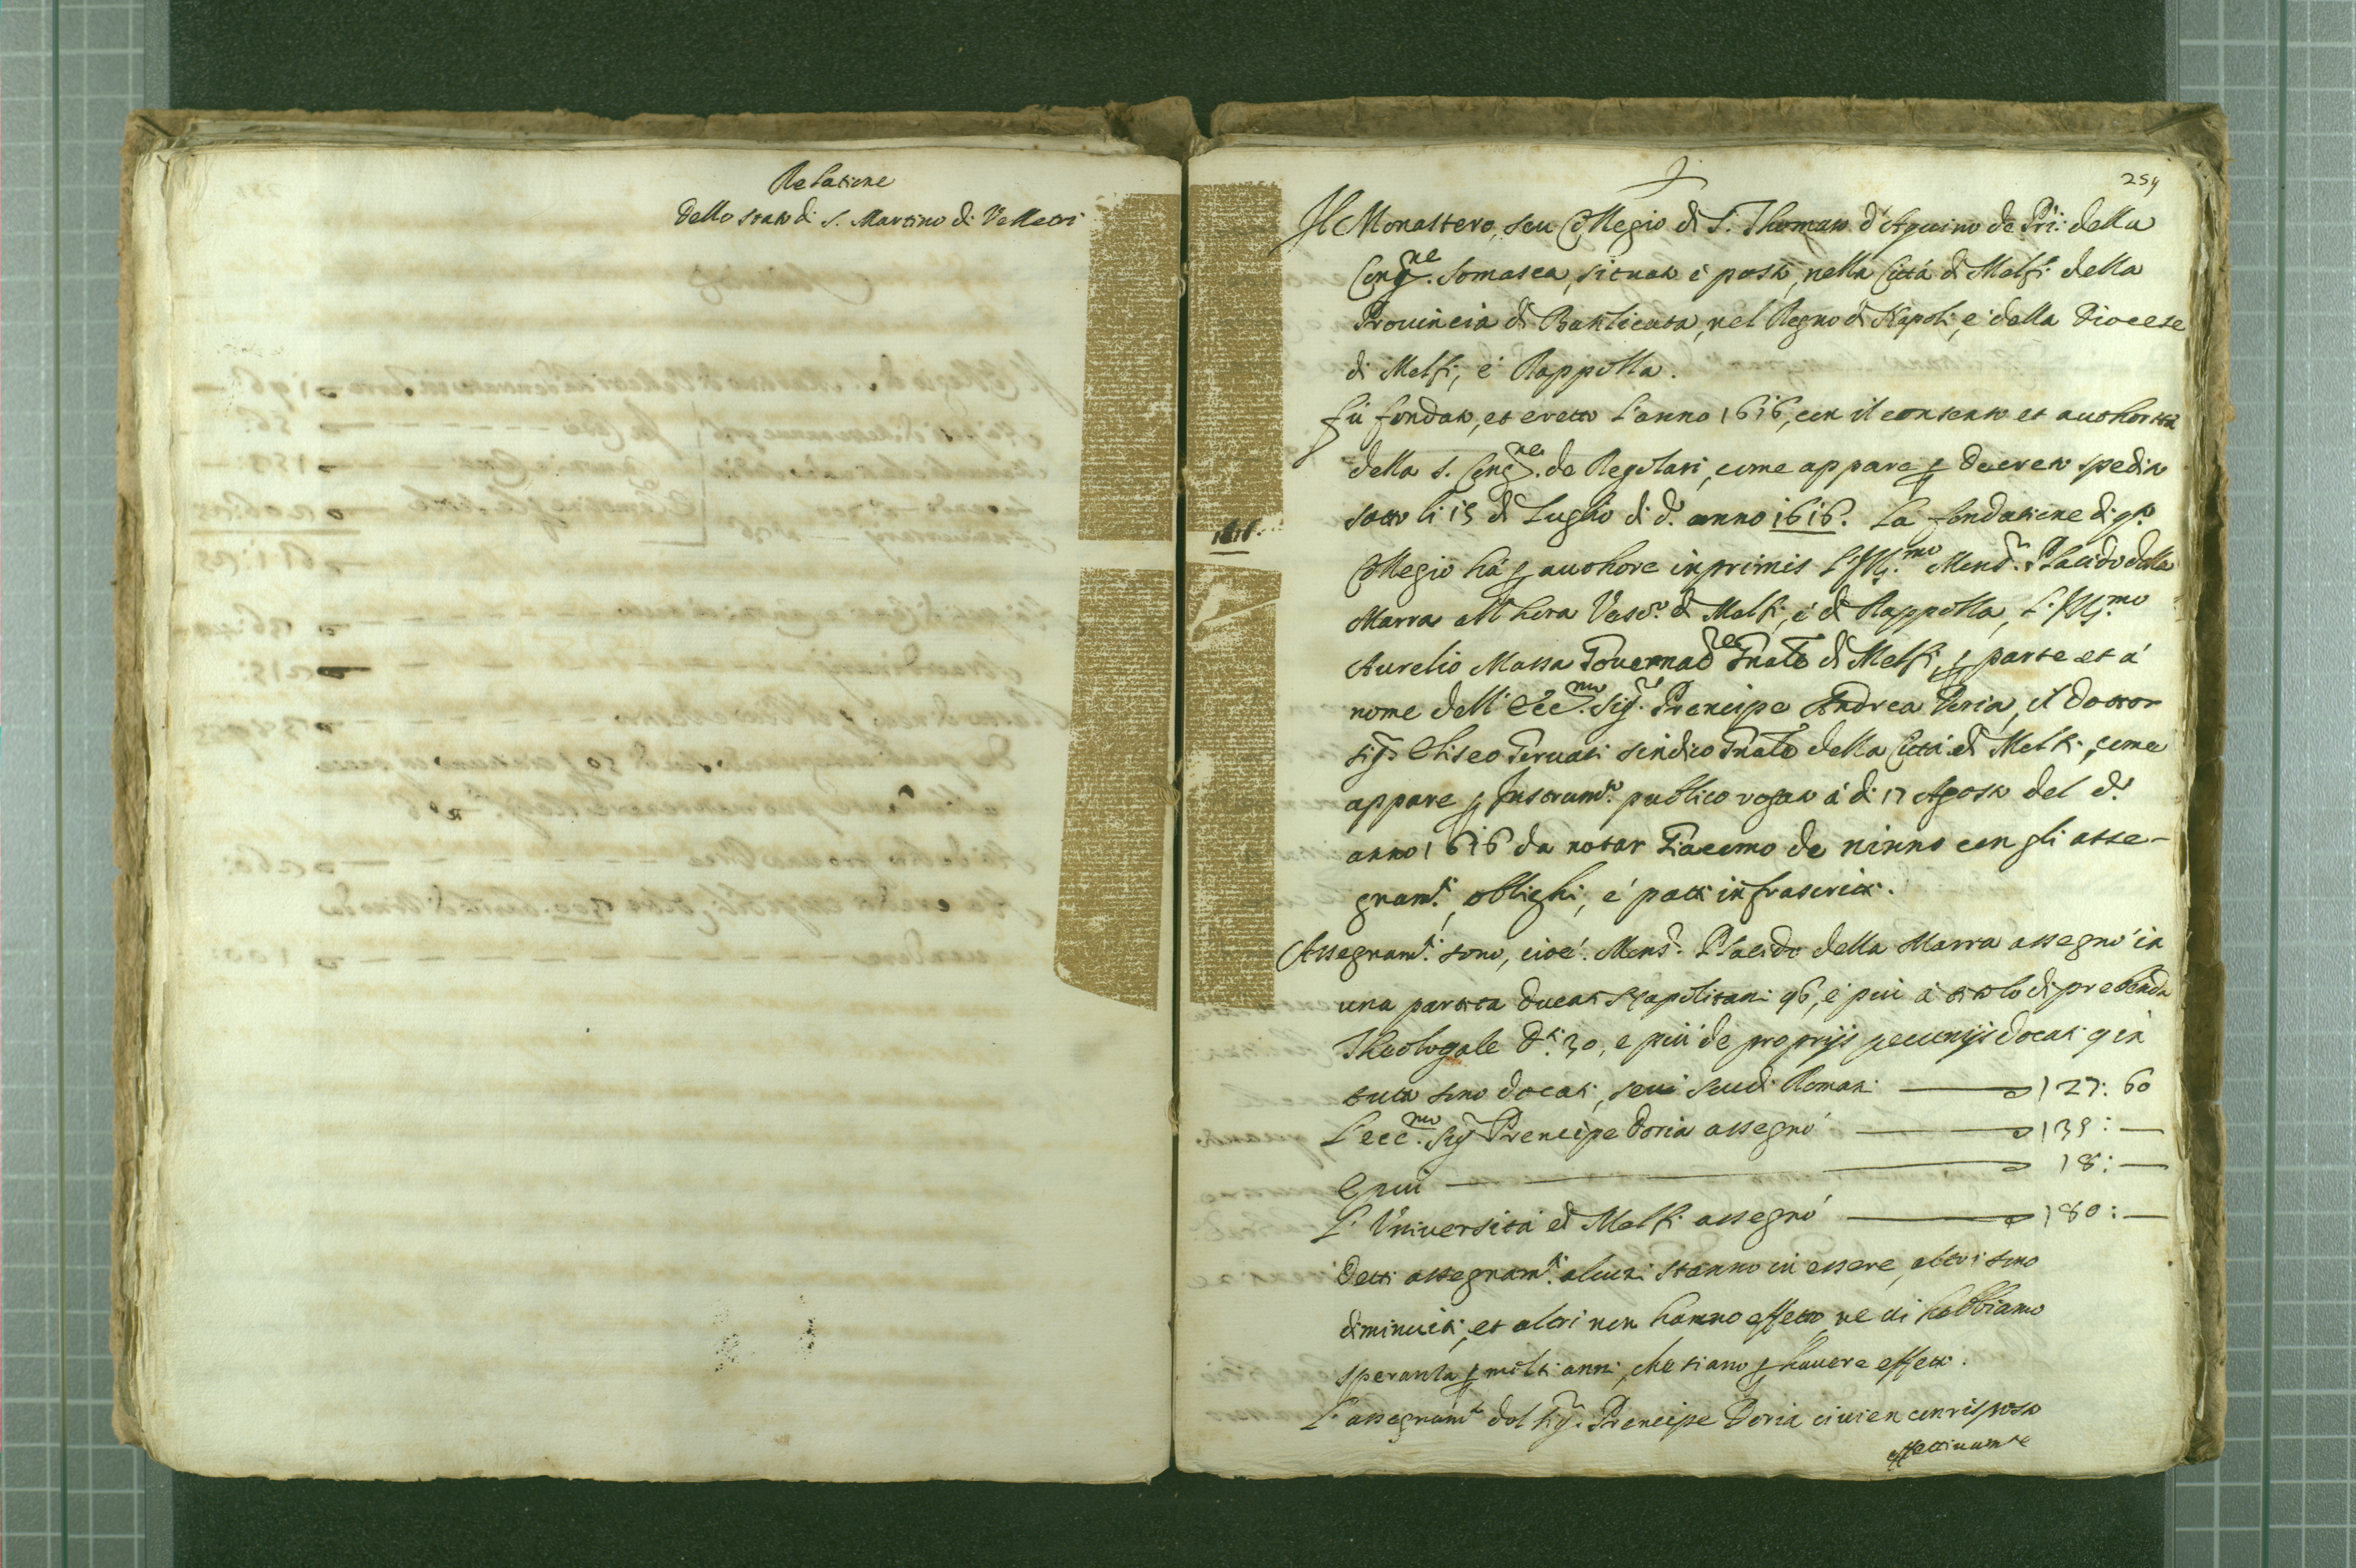 Relatione
dello stato di S. Martino di Velletri
254
Il Monastero, seu Collegio di S. Thomaso d'Aquino de Pri: della
Cong.ne Somasca, situato è posto, nella Città di Melfi della
Prouincia di Basilicata, nel Regno di Napoli, e della Diocese
di Melfi, e Rappolla.
fù fondato, et eretto l'anno 1616, con il consenso et authorità
della S. Cong.ne de Regolari, come appare p decreto spedito
sotto li 15 di Luglio di d.o anno 1616. La fondatione di q.to
1616.
Collegio hà p authore inprimis l'Ill.mo Mons.r Placido della
Marra all'hora Vesc.o di Melfi, é di Rappolla, l'Ill.mo
Aurelio Massa Gouernad.re Gnale di Melfi, p parte et á
nome dell'Ecc.mo Sig.r Prencipe Andrea Doria, il dottor
sig.r Eliseo Geruasi sindico Gnale della Città di Melfi, come
appare p Instrum.to publico rogato á di 17 Agosto del d.o
anno 1616 da notar Giacomo de ninno con gli asse-
gnam.ti, oblighi, é patti infrascritti.
Assegnam.ti sono, cioé. Mons.r Placido della Marra assegnó in
una partita ducati Napolitani 96, é piú á titolo di prebenda
Theologale d.ti 30, e piú de proprijs pecunijs docati 9 in
tutto sono docati, seu scudi Romani 127: 60
L'ecc.mo Sig.r Prencipe Doria assegnó 139: —
E piú 18: —
L'Vniuersitá di Melfi assegnó 180: —
Detti assegnam.ti alcuni stanno in essere, altri sono
diminuiti, et altri non hanno effetto, ne ui habbiamo
speranza p molti anni, che siano p hauere effetto.
L'assegnam.to del sig.r Prencipe Doria ci uien corrisposto
effettiuam.te